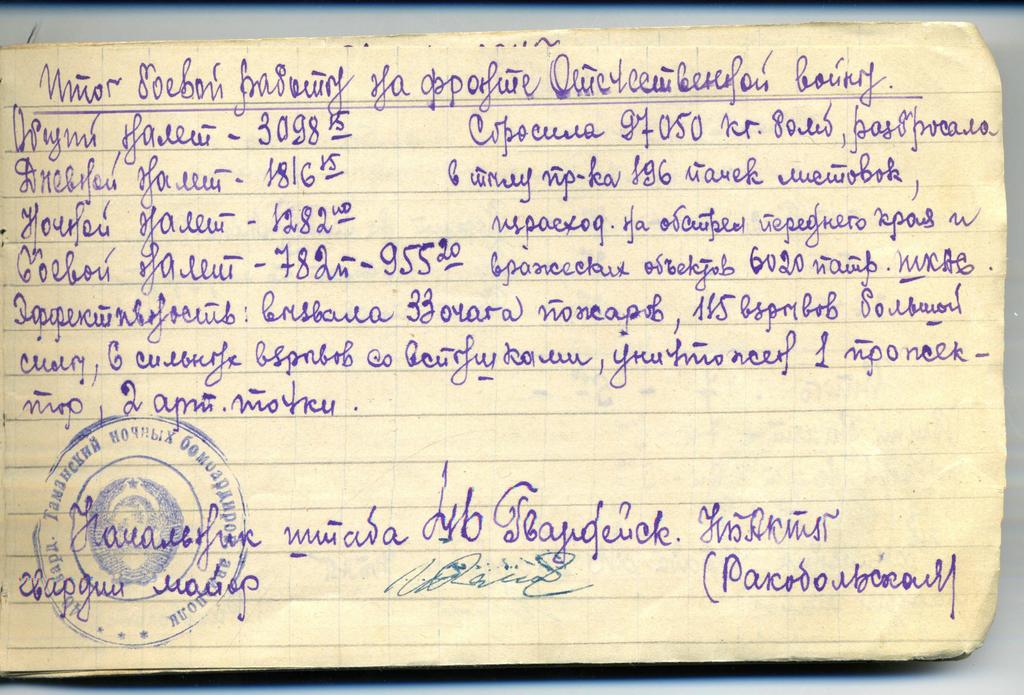 Итог боевой работы на фронте Отечественной войны.
Общий налет - 3098 15
Дневной налет - 1816 15
Ночной налет - 1282 00
Боевой налет - 782п - 955 20
Сбросила 97050 кг. бомб, разбросала
в тылу пр-ка 196 пачек листовок,
израсход. на обстрел переднего края и
вражеских объектов 6020 патр. ШКАС.
Эффективность: вызвала 33 очага пожаров, 115 взрывов большой
силы, 6 сильных взрывов со вспышками, уничтожен 1 прожек-
тор, 2 арт. точки.
Начальник штаба 46 Гвардейск. НБАКТП
гвардии майор (Ракобольская)
Гвард. Таманский ночных бомбардиров. ав. полк